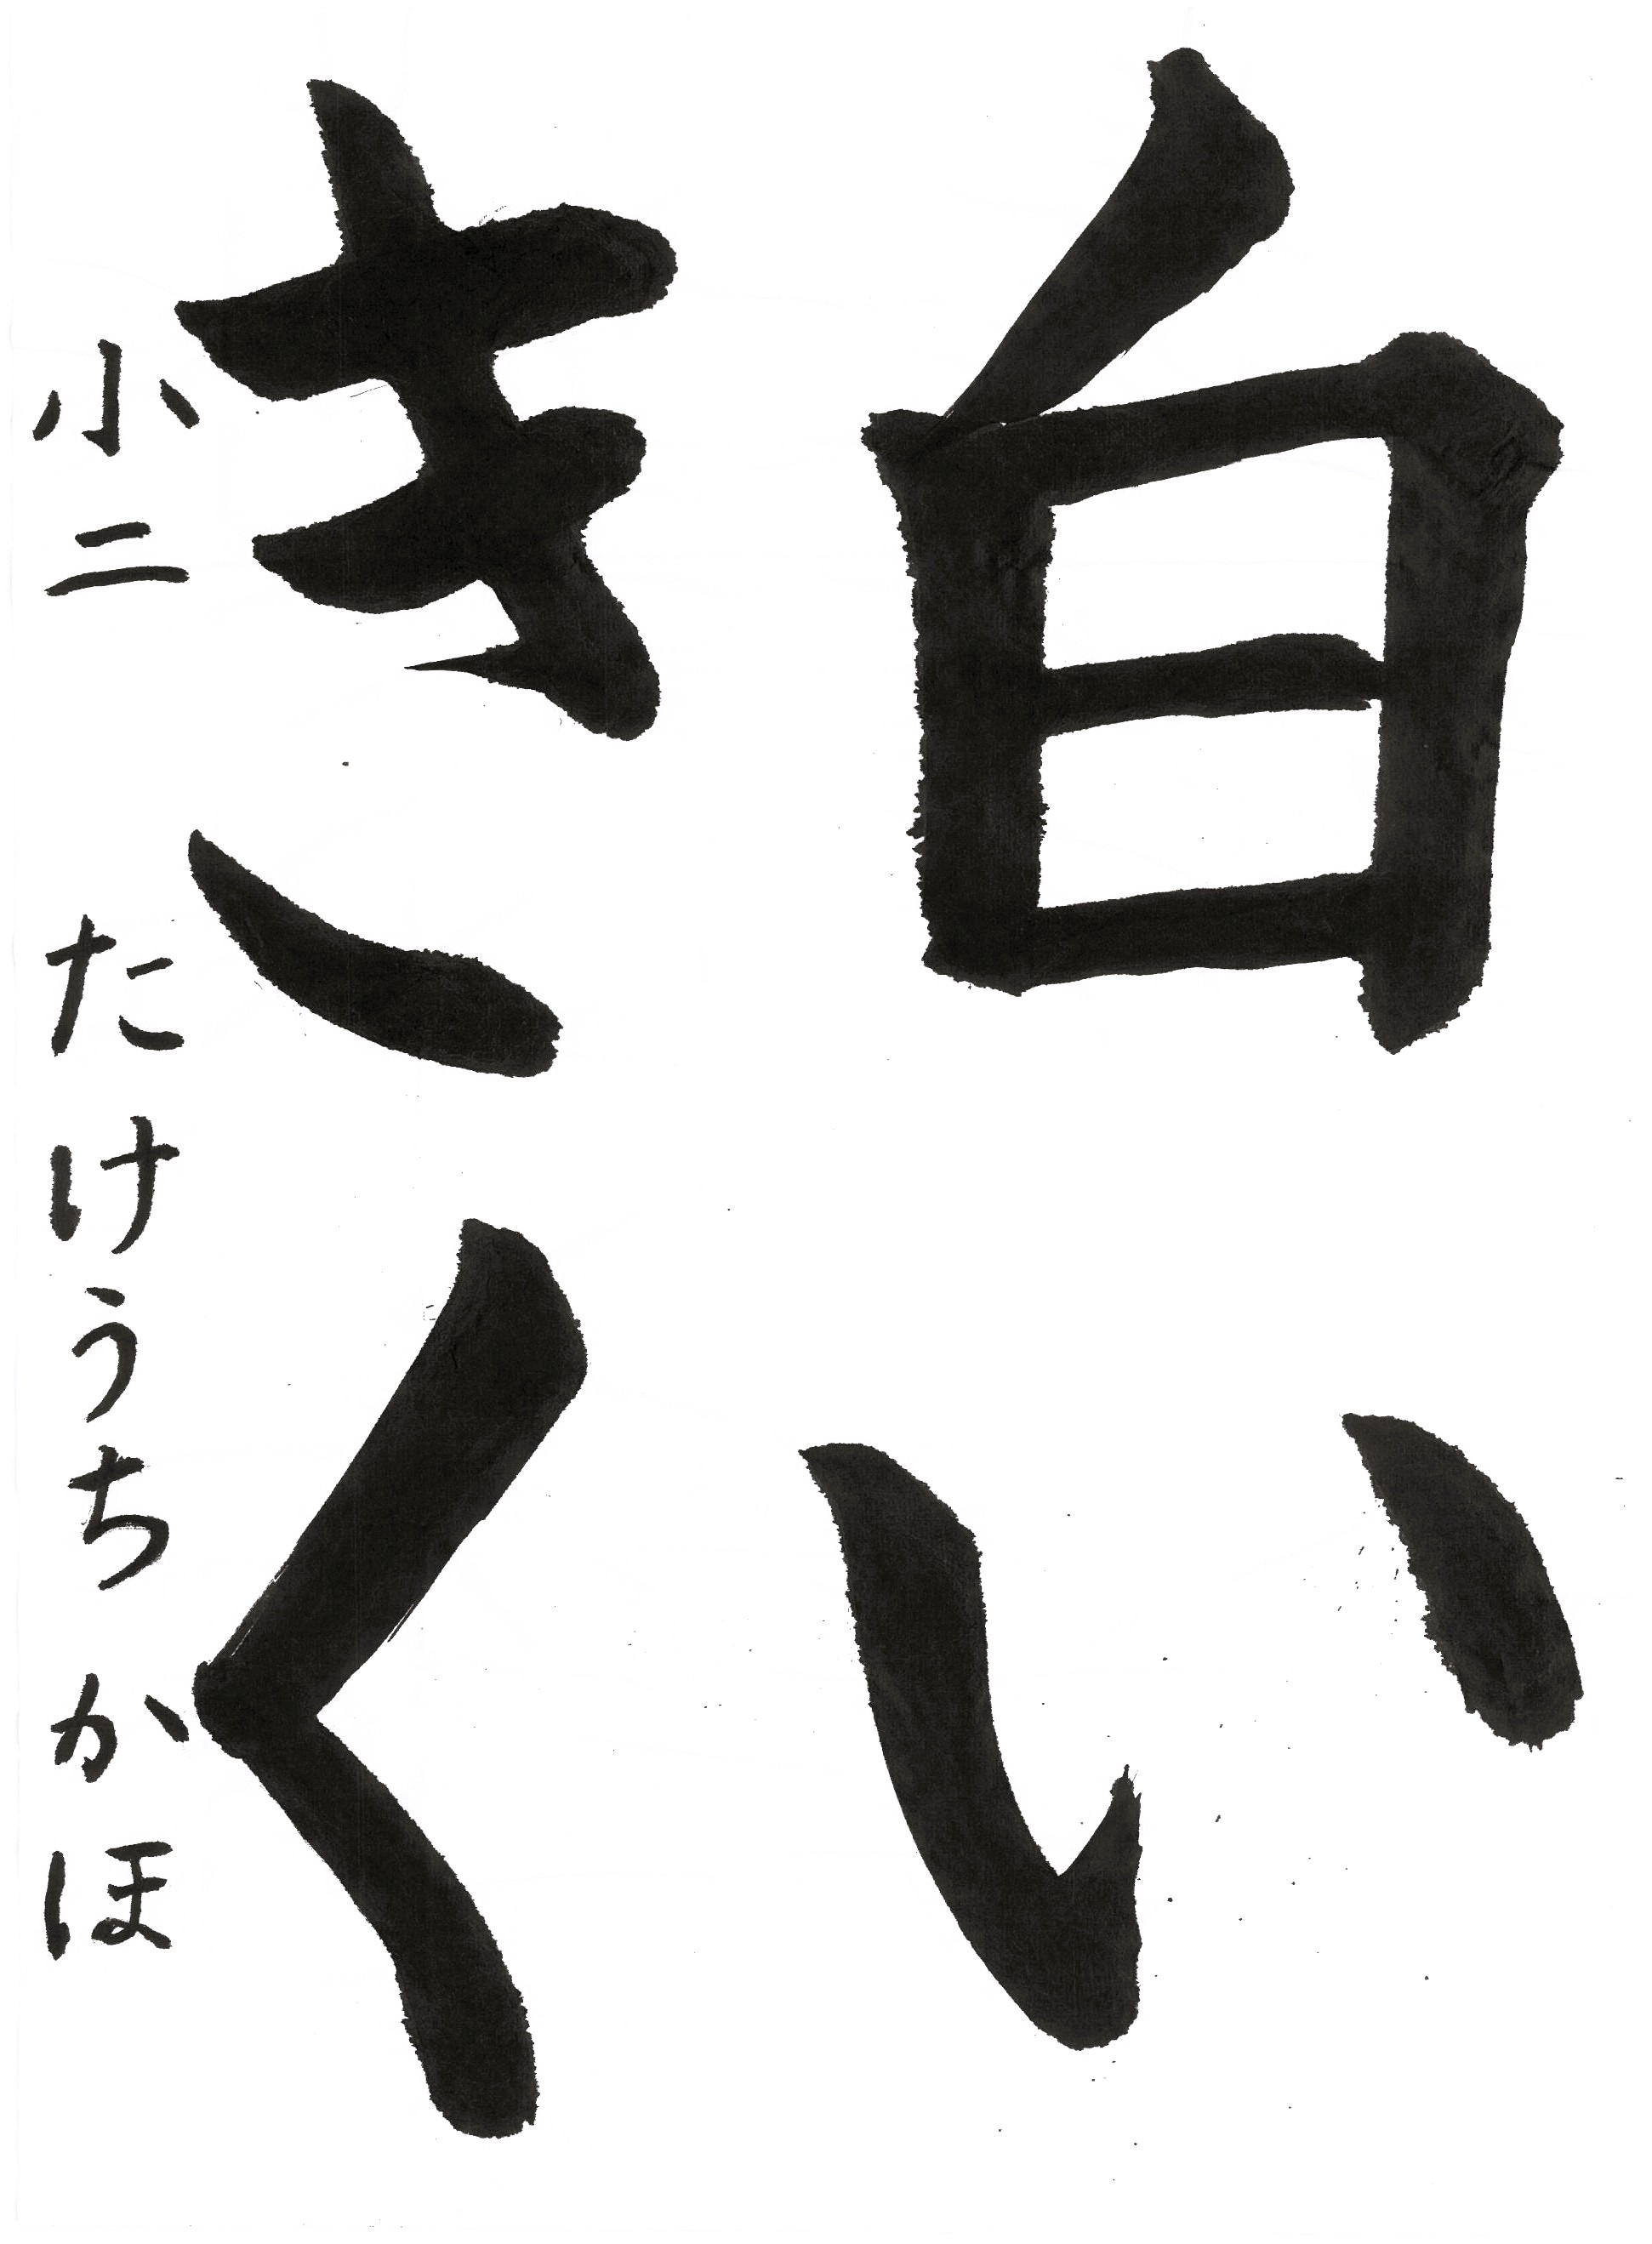 白い
きく
小二 たけうちかほ